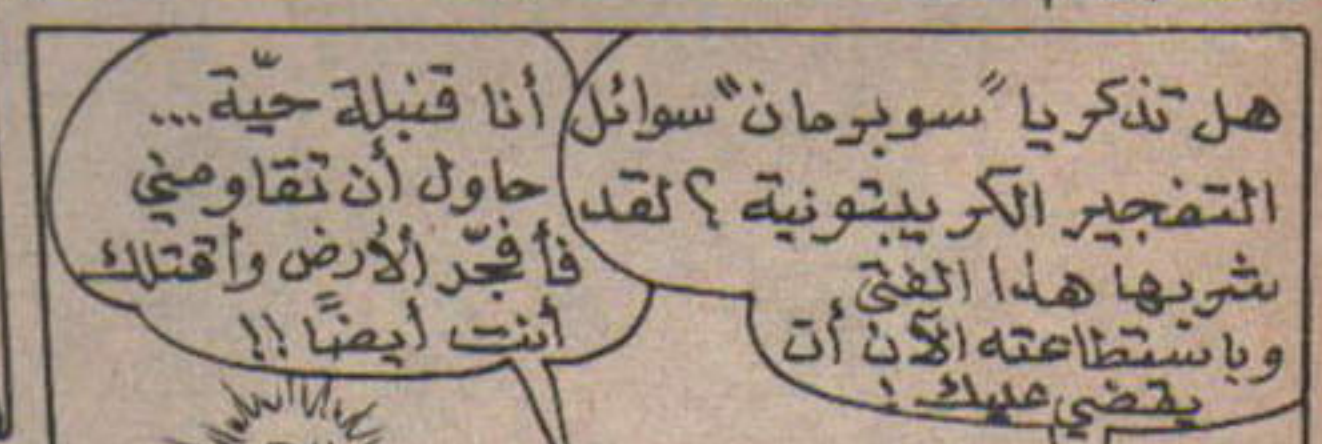 هل تذكر يا "سوبرمان" سوائل
التفجير الكريبتونية ؟ لقد
شربها هذا الفتى
وباستطاعته الآن أن
يقضي عليك !
أنا قنبلة حيّة ...
حاول أن تقاومني
فأفجّر الأرض وأقتلك
أنت أيضًا !!